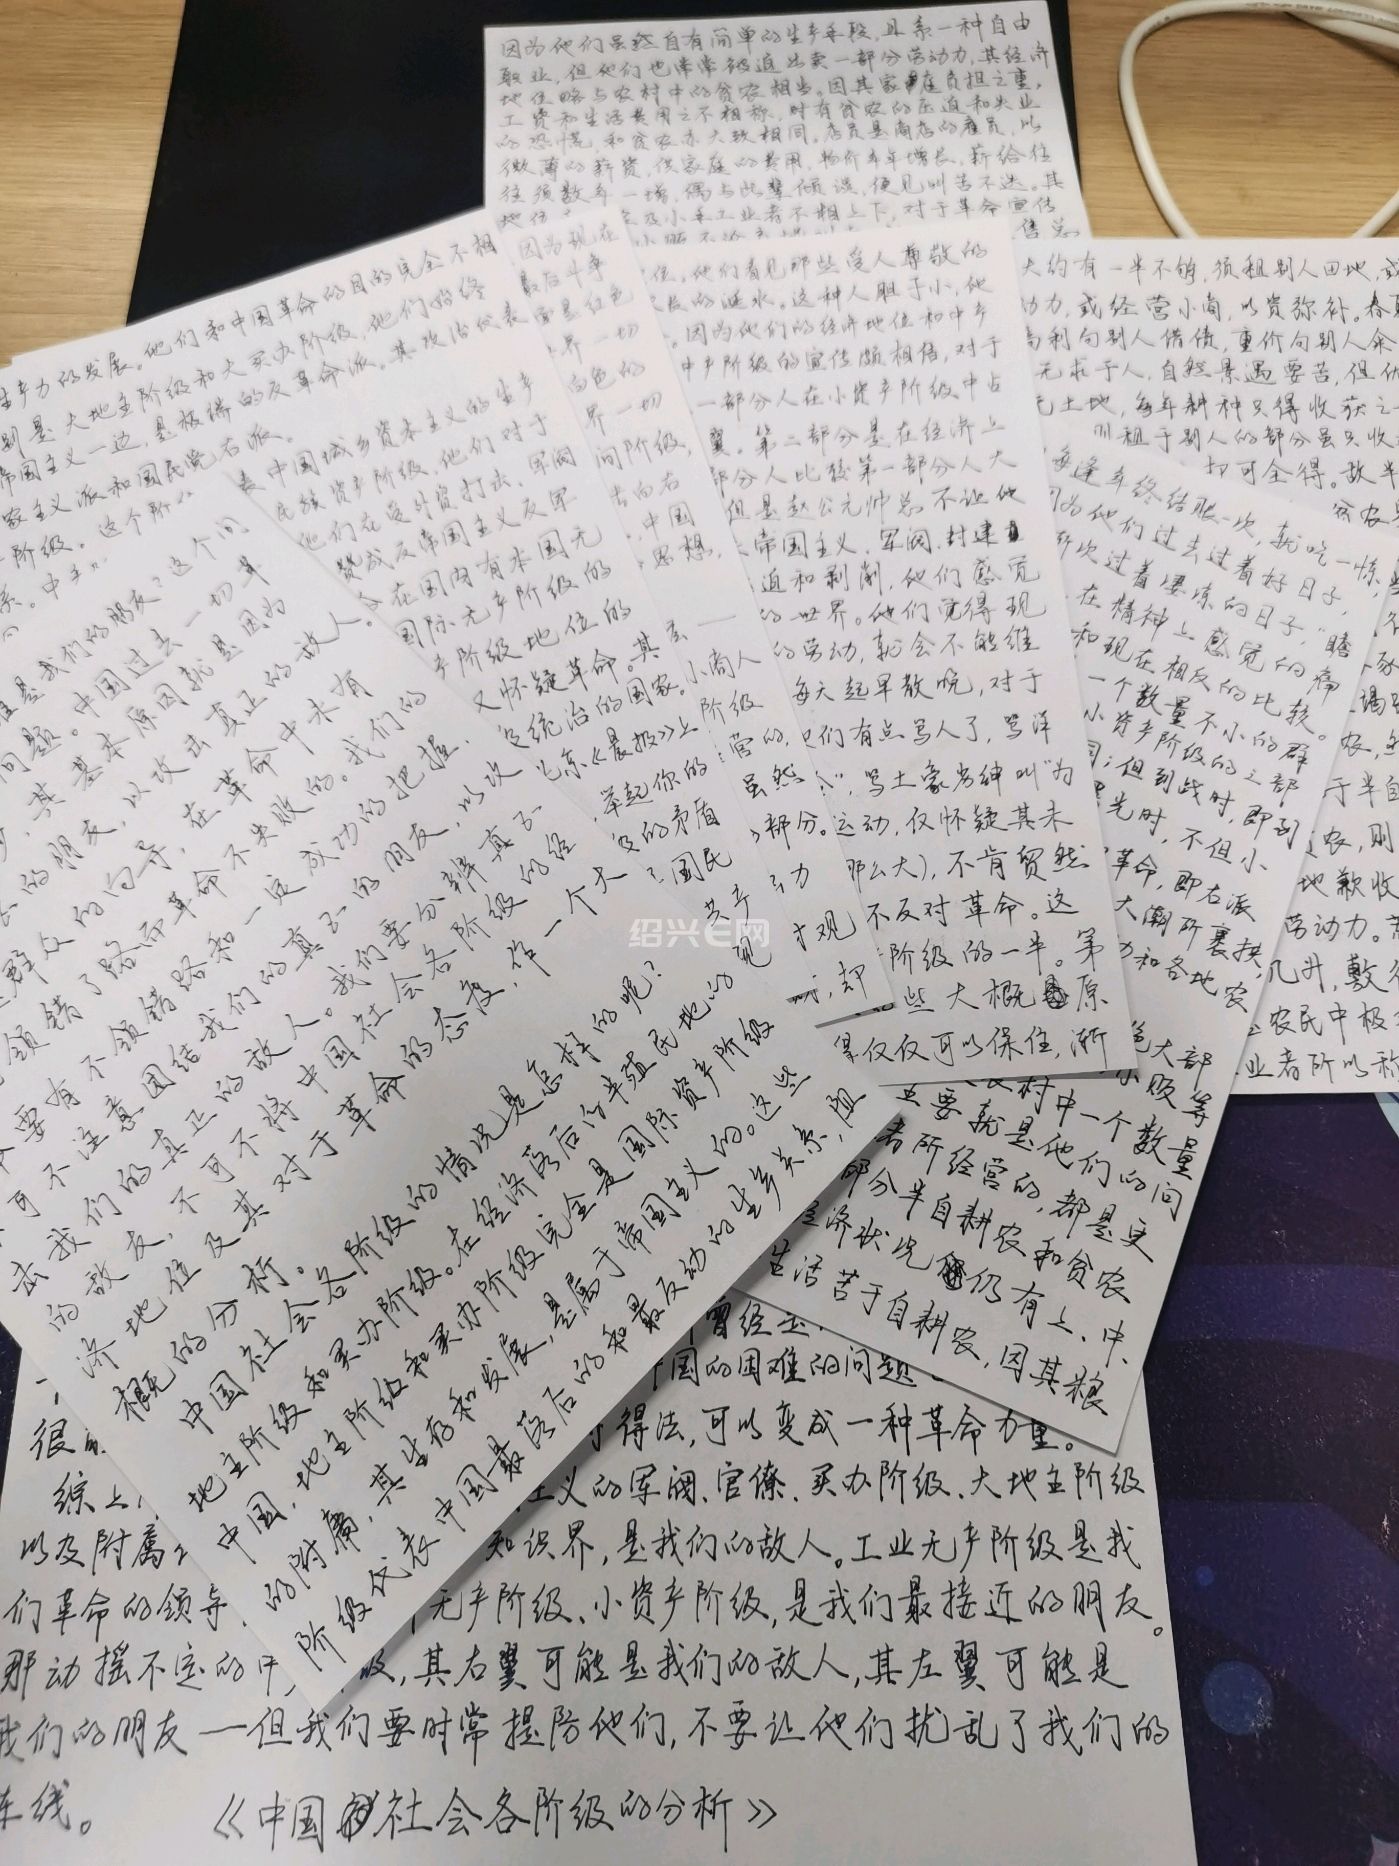 因为他们虽然自有简单的生产手段,且系一种自由
职业,但他们也常常被迫出卖一部分劳动力,其经济
地位略与农村中的贫农相当。因其家庭负担之重,
工资和生活费用之不相称,时有贫农的压迫和失业
的恐慌,和贫农亦大致相同。店员是商店的雇员,以
微薄的薪资,供家庭的费用,物价年年增长,薪给往
往须数年一增,偶与此辈倾谈,便见叫苦不迭。其
及小手工业者不相上下,对于革命宣传
生产力的发展。他们和中国革命的目的完全不相
别是大地主阶级和大买办阶级,他们始终
帝国主义一边,是极端的反革命派。其政治代表
家主义派和国民党右派。
阶级。这个阶
中国城乡资本主义的生产
民族资产阶级,他们对于
他们在受外资打击、军阀
赞成反帝国主义反军
在国内有本国无
国际无产阶级的
产阶级地位的
又怀疑革命。其
统治的国家。
东《晨报》上
举起你的
的矛盾
国民
因为现在
最后斗争
面是红色
界一切
白色的
界一切
间阶级,
向右
中国
思想,
小商人
阶级
营的,
虽然
部分。
位。他们看见那些受人尊敬的
的涎水。这种人胆子小,他
因为他们的经济地位和中产
中产阶级的宣传颇相信,对于
一部分人在小资产阶级中占
翼。第二部分是在经济上
部分人比较第一部分人大
但是赵公元帅总不让他
帝国主义、军阀、封建
迫和剥削,他们感觉
的世界。他们觉得现
的劳动,就会不能维
每天起早散晚,对于
们有点骂人了,骂洋
骂土豪劣绅叫“为
运动,仅怀疑其未
那么大),不肯贸然
不反对革命。这
阶级的一半。第
些大概原
仅仅可以保住,渐
大约有一半不够,须租别人田地,或
动力,或经营小商,以资弥补。春夏
高利向别人借债,重价向别人籴
无求于人,自然景遇要苦,但优
土地,每年耕种只得收获之
租于别人的部分虽只收
可全得。故半
每逢年终结账一次,就吃一惊,
因为他们过去过着好日子,
过着凄凉的日子,“瞻
在精神上感觉的痛
和现在相反的比较。
一个数量不小的群
小资产阶级的三部
但到战时,即到
光时,不但小
革命,即右派
大潮所裹挟,
和各地农
大部
小贩等
村中一个数量
要就是他们的问
者所经营的,都是更
部分半自耕农和贫农
经济状况仍有上、中、
生活苦于自耕农,因其粮
农,则
地歉收
劳动力。
几升,
农民中极
业者所以称
是我们的朋友?这个问
问题。中国过去一切革
其基本原因就是因为
的朋友,以攻击真正的敌人。
群众的向导,在革命中未有
领错了路而革命不失败的。我们的
要有不领错路和一定成功的把握,
可不注意团结我们的真正的朋友,以攻
击我们的真正的敌人。我们要分辨真正
的敌友,不可不将中国社会各阶级的经
济地位及其对于革命的态度,作一个大
概的分析。
中国社会各阶级的情况是怎样的呢?
地主阶级和买办阶级。在经济落后的半殖民地的
中国,地主阶级和买办阶级完全是国际资产阶级
的附庸,其生存和发展,是属于帝国主义的。这些
阶级代表中国最落后的和最反动的生产关系,阻
绍兴E网
曾经
国的困难的问题
得法,可以变成一种革命力量。
综上
主义的军阀、官僚、买办阶级、大地主阶级
以及附属
知识界,是我们的敌人。工业无产阶级是我
们革命的领导
无产阶级、小资产阶级,是我们最接近的朋友。
那动摇不定的中
级,其右翼可能是我们的敌人,其左翼可能是
我们的朋友——但我们要时常提防他们,不要让他们扰乱了我们的
线。
《中国社会各阶级的分析》